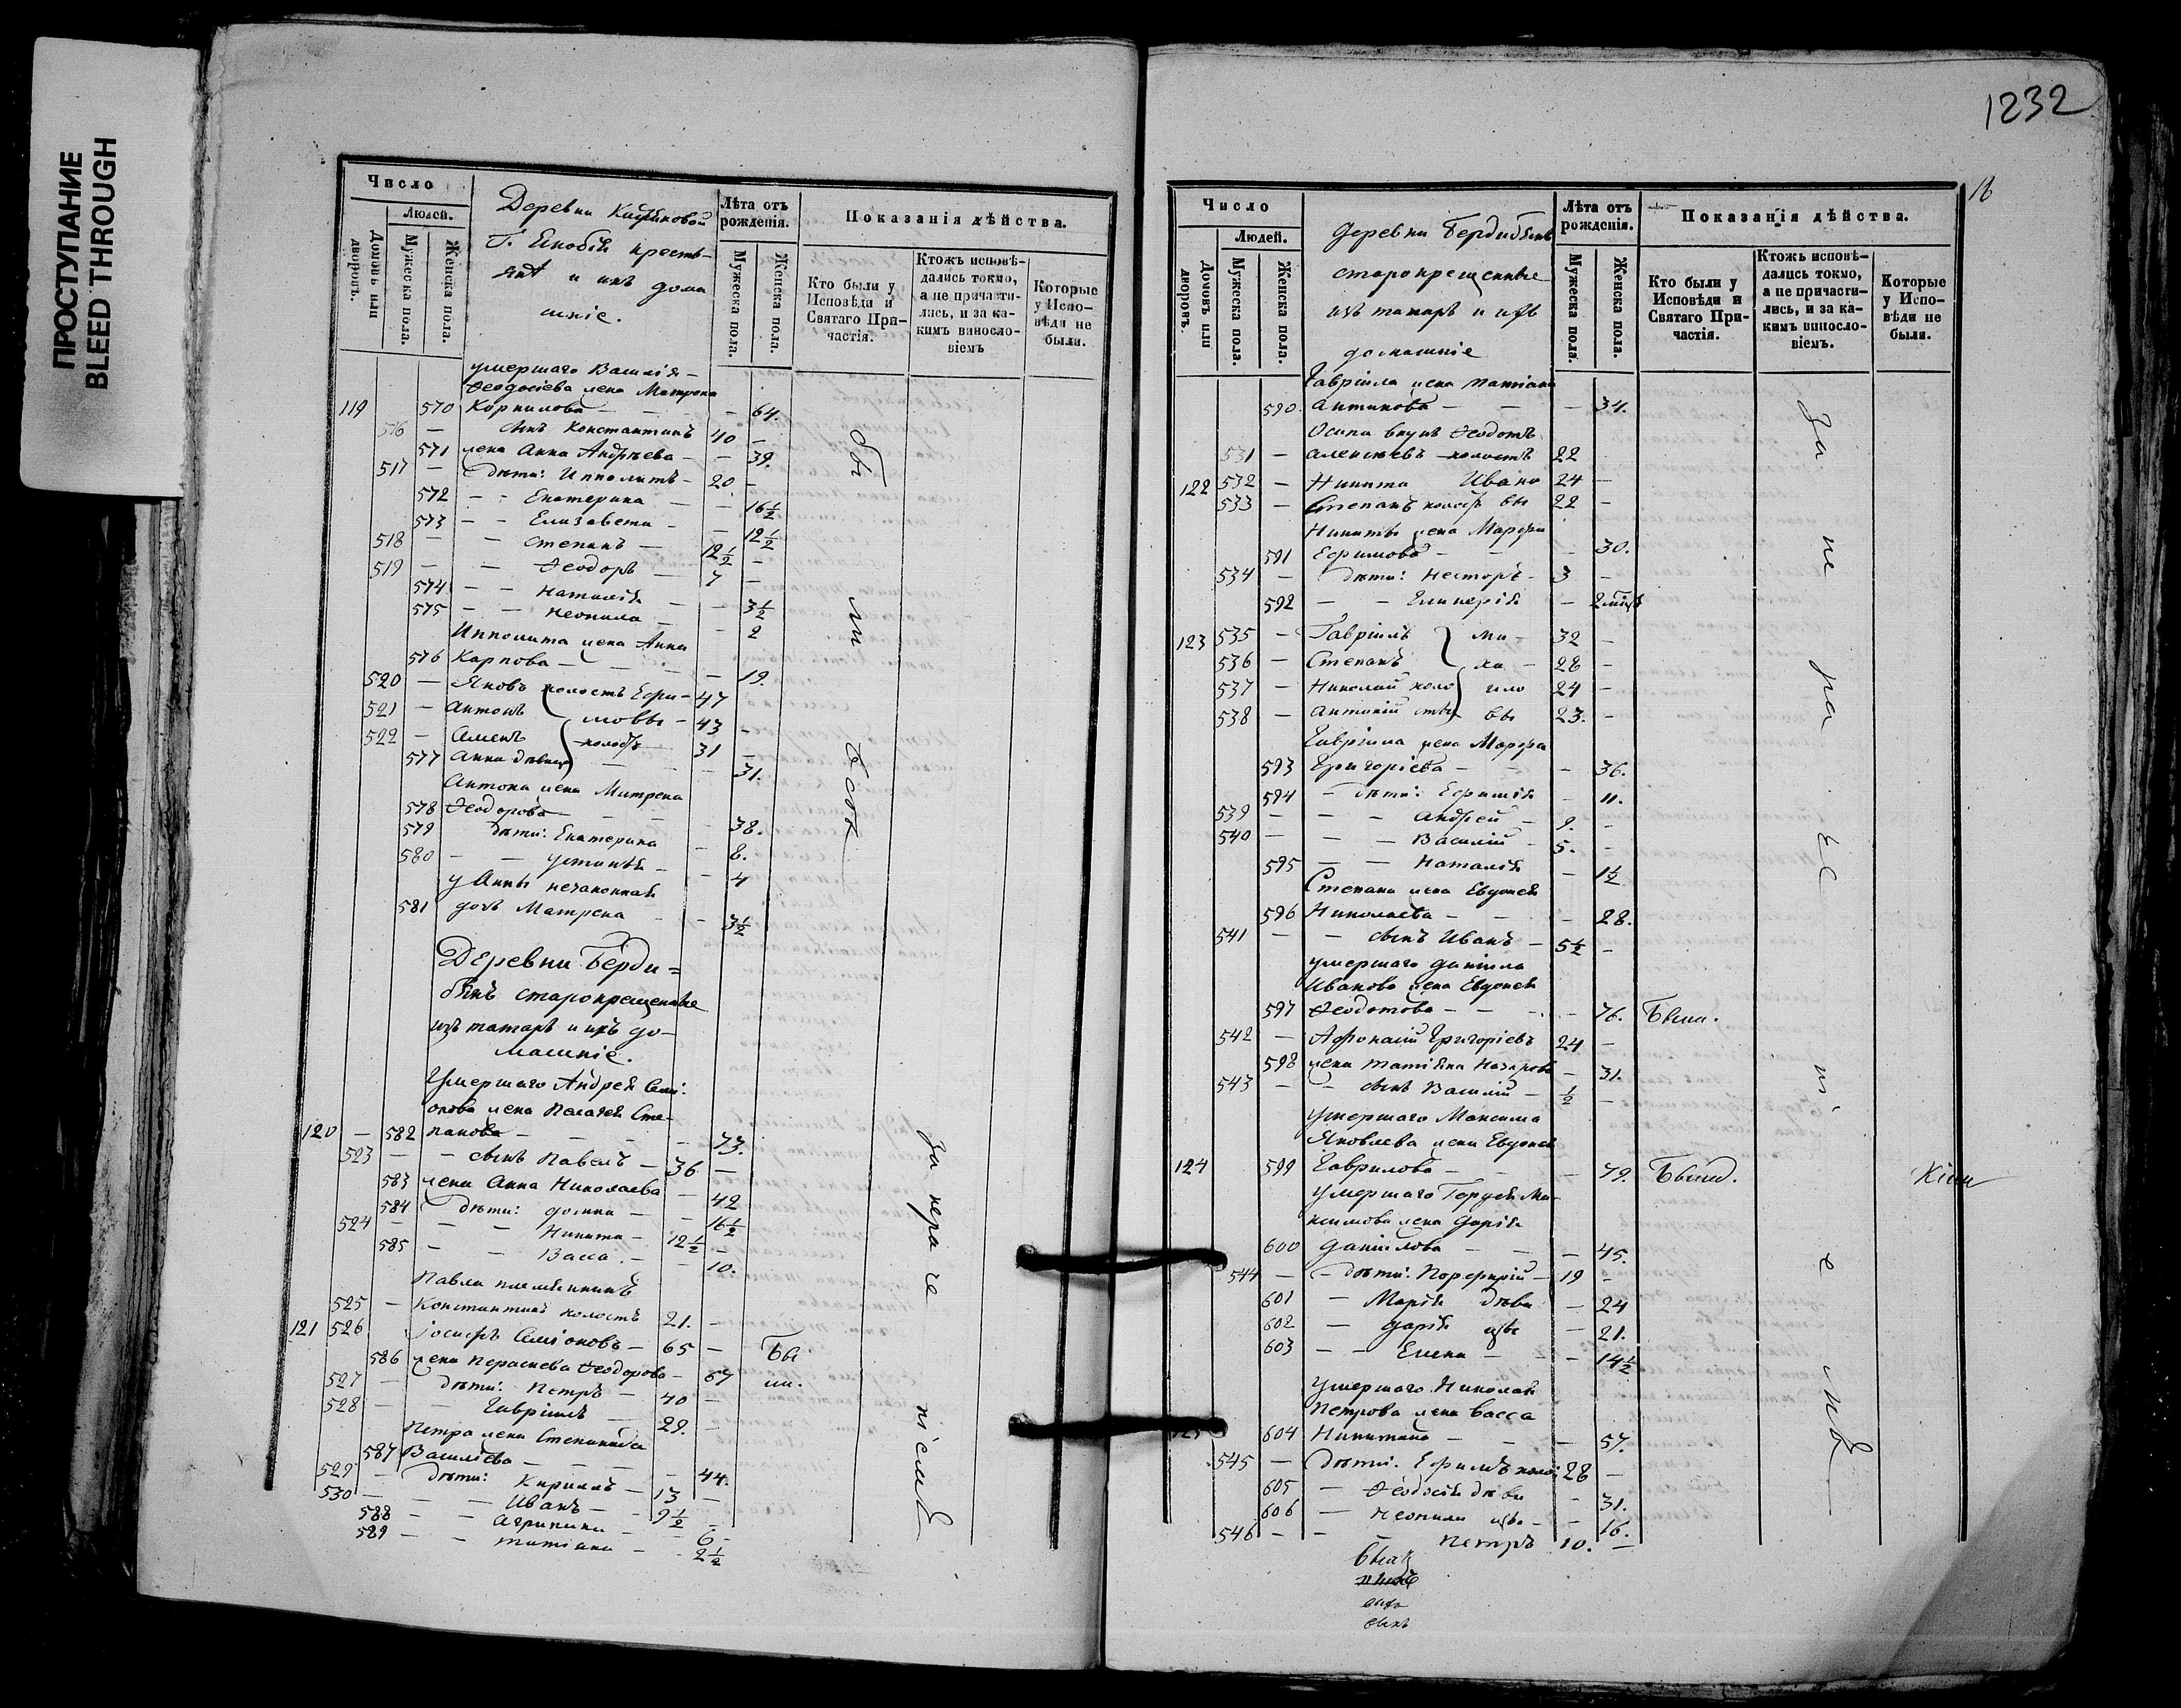 ПРОСТУПАНИЕ
BLEED THROUGH
Число
Людей.
Домовъ или дворовъ.
Мужеска пола.
Женска пола.
Деревни
крестья-
и ихъ дома
шніе.
Лѣта отъ рожденія.
Мужеска пола.
Женска пола.
Показанія дѣйства.
Кто были у Исповѣди и Святаго Причастія.
Ктожъ исповѣ-
дались токмо,
а не причасти-
лись, и за ка-
кимъ винosло-
віемъ
Которые
у Испо-
вѣди не
были.
умершаго Василія
Ѳеодосіева жена Матрена
119 570 Корнилова - - - 64.
516 - сынъ Константинъ 40 -
571 жена Анна Андреева - - 39.
517 - дѣти: Ипполитъ - 20 -
572 - - Екатерина - - 16½
573 - - Елизавета - - 12½
518 - - Степанъ - 12½ -
519 - - Ѳеодоръ - 7 -
574 - - Наталія - - 3½
575 - - Неонила - - 2
Ипполита жена Анна
576 Карпова - - - 19.
520 - Яковъ холостъ Ефи- 47
521 - Антонъ мовы - 43 -
522 - холостъ 31 -
577 Анна дѣвица - - 31.
Антона жена Матрена
578 Ѳеодорова - - - 38.
579 дѣти: Екатерина - 8.
580 - - Устинія - - 4
у Анны незаконная
581 дочь Матрена - - 3½
были всѣ
Деревни Берди=
бякъ старокрещенные
изъ татаръ и ихъ до-
машніе.
Умершаго Андрея Сими-
онова жена Пелагея Сте-
120 - 582 панова - - - 73.
523 - - сынъ Павелъ - 36 -
583 жена Анна Николаева - 42
584 дѣти: Домна - - 16½
524 - - - Никита - 12½ -
585 - - Васса - - 10.
Павла племянникъ
525 - Константинъ холостъ 21. -
121 526 Іосифъ Симіоновъ - 65 - Бы
586 жена Параскева Ѳеодорова - 67 ли.
527 - дѣти: Петръ - 40 -
528 - - Гавріилъ - 29. -
Петра жена Степанида
587 Василіева - - - 44.
529 - дѣти: Кириллъ - 13 -
530 - - - Иванъ - 9½ -
588 - - Агрипина - - 6 -
589 - - Татіана - - 2½
за нераченіемъ
1232
Число
Людей.
Домовъ или дворовъ.
Мужеска пола.
Женска пола.
Деревни Бердибякъ
старокрещенные
изъ татаръ и ихъ
домашніе
Лѣта отъ рожденія.
Мужеска пола.
Женска пола.
Показанія дѣйства.
Кто были у Исповѣди и Святаго Причастія.
Ктожъ исповѣ-
дались токмо,
а не причасти-
лись, и за ка-
кимъ винosло-
віемъ.
Которые
у Испо-
вѣди не
были.
Гавріила жена Татіана
590. Антипова - - - 34.
Осипа внукъ Ѳеодотъ
531 - Алексѣевъ холостъ 22
122 532 - Никита Ивано 24 -
533 - Степанъ холост вы 22 -
Никиты жена Марфа
591 Ефимова - - - 30.
534 - дѣти: Несторъ - 3 -
592 - - Гликерія - 2
123 535 - Гавріилъ Ми- 32 -
536 - Степанъ ха - 28 -
537 - Николай холо йло 24 -
538 - Антоній сты вы 23. -
Гавріила жена Марфа
593 Григоріева - - - 36.
594 - дѣти: Ефимія - 11.
539 - - - Андрей - 9. -
540 - - - Василій - 5. -
595 - - Наталія - 1½
Степана жена Евдокія
596 Николаева - - - 28.
541 - - сынъ Иванъ - 5½ -
умершаго Даніила
Иванова жена Евдокія
597 Ѳеодотова - - - 76. Были.
542 - Афонасій Григоріевъ 24 -
598 жена Татіяна Назарова - 31.
543 - - сынъ Василій - ½ -
умершаго Максима
Яковлева жена Евдокія
124 599 Гаврилова - - - 79. Были.
умершаго Гордея Ма-
ксимова жена Дарія
600 Даніилова - - - 45.
544 - - дѣти: Порфирій - 19 -
601 - Марія дѣви - 24
602 - Дарія цы - 21.
603 - - Елена - - 14½
умершаго Николая
Петрова жена Васса
125 604 Никитина - - - 57.
545 - дѣти: Ефимъ холо: 28 -
605 - Ѳеодосія дѣви - 31.
606 - Неонила цы - - 16.
546 - - - Петръ 10. -
за нераченіемъ